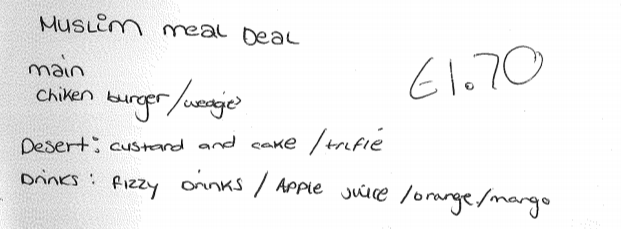 Muslim meal Deal
main
£1.70
chiken burger/wedges
Desert: custard and cake /trifle
Drinks: fizzy drinks / Apple juice /orange/mango